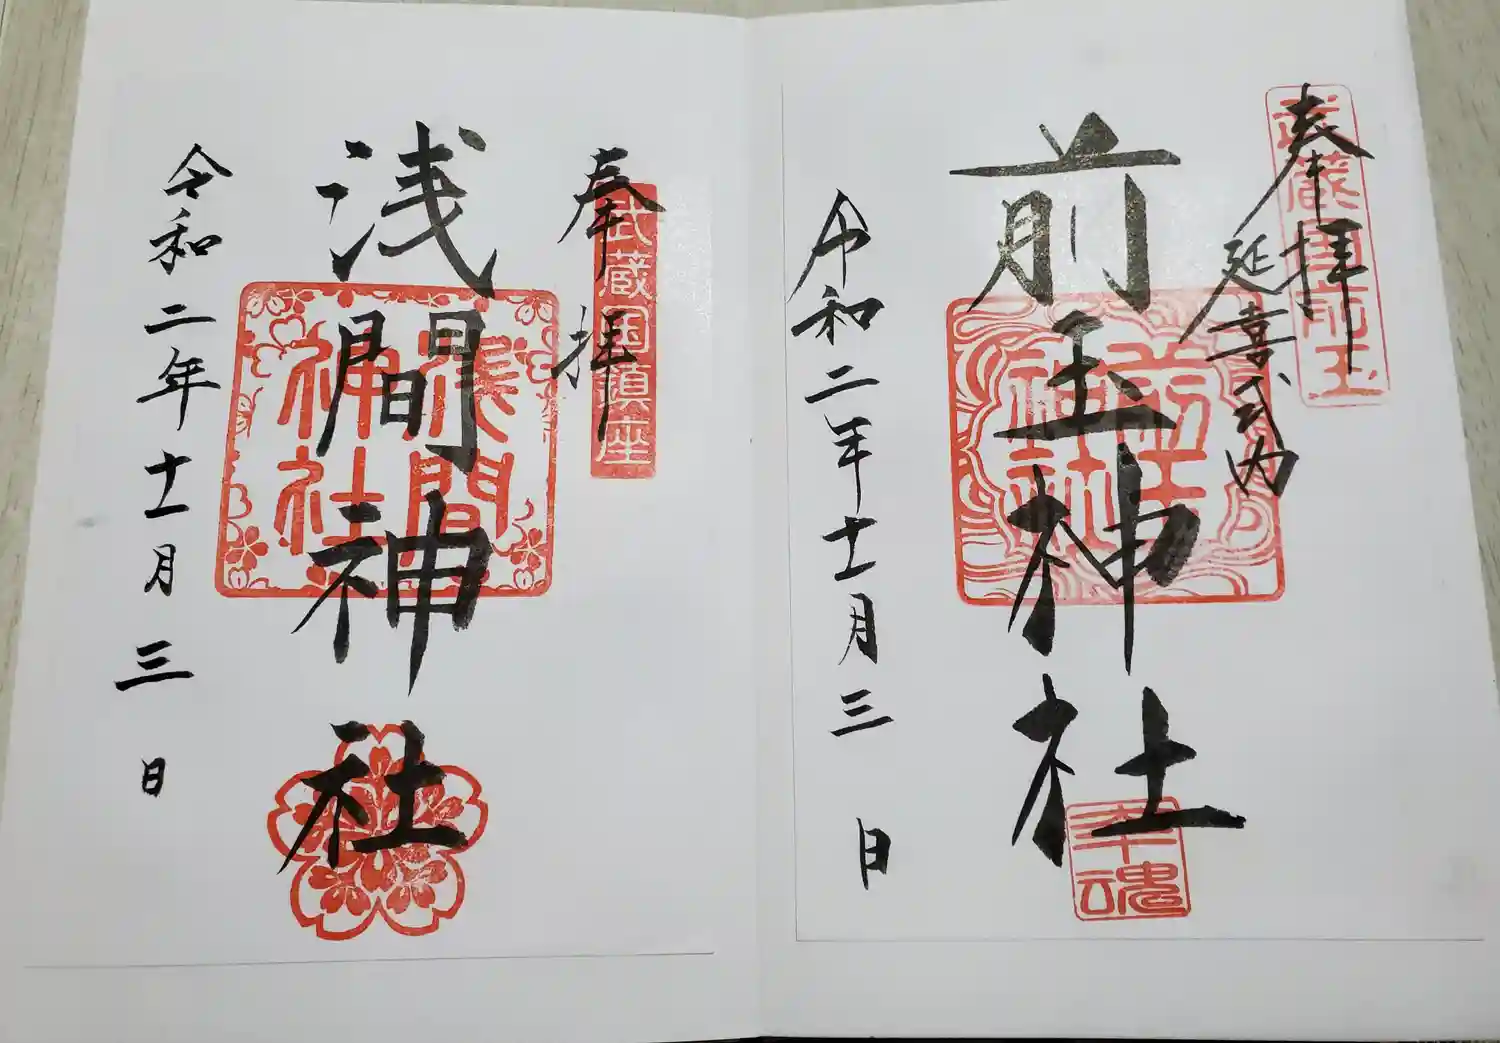 奉拝
武蔵国前玉
延喜式内
前玉神社
前玉神社
幸魂
令和二年十一月三日
奉拝
武蔵国鎮座
浅間神社
浅間神社
令和二年十一月三日